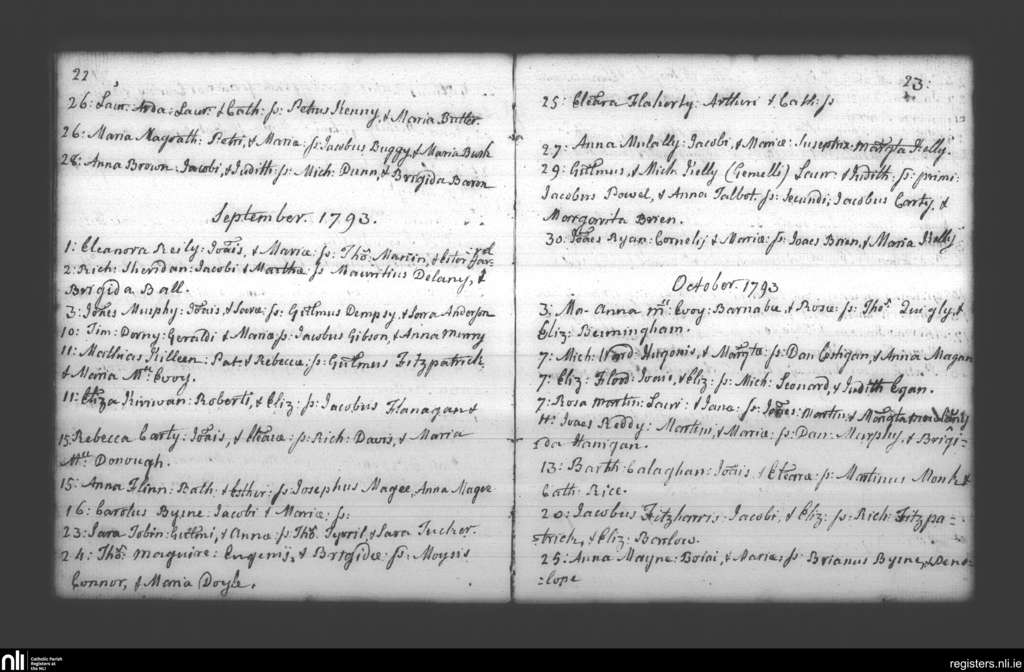 22
26: Laur: Arda: Laur: & Cath: ss: Petrus Kenny, & Maria Butler.
26: Maria Magrath: Petri, & Maria: ss: Jacobus Duggy, & Maria Bush
28: Anna Brown: Jacobi, & Judith: ss: Mich: Dunn, & Brigida Baron
September. 1793.
1: Eleanora Reily: Joais, & Mariæ: ss: Tho: Martin, & Ester
2: Rich: Sheridan: Jacobi & Martha: ss Mauritius Delany, &
Brigida Ball.
3: Joaes Murphy: Joais, & Saræ: ss: Gulmus Dempsy, & Sara Anderson
10: Tim: Dorny: Geraldi & Mariæ ss: Jacobus Gibson, & Anna Murry
11: Matthias Killeen: Pat: & Rebecca: ss: Gulmus Fitzpatrick,
& Maria Mc Evoy.
11: Eliza Kirwan: Roberti, & Eliz: ss: Jacobus Flanagan &
15: Rebecca Carty: Joais, & Claræ: ss: Rich: Davis, & Maria
Mc Donough.
15: Anna Flinn: Bath: & Esther: ss Josephus Magee, Anna Magee
16: Carolus Byrne: Jacobi & Mariæ: ss:
23: Sara Tobin: Gulmi, & Anna: ss: Tho: Tyrril, & Sara Tucker.
24: Tho: Maguire: Eugenij, & Brigidæ ss: Moyses
Connor, & Maria Doyle.
23:
25: Cleara Flaherty: Arthuri & Cath: ss
27: Anna Mulally: Jacobi, & Mariæ: Susceptrix Margta Kelly
29: Gulmus, & Mich: Kelly (Gemelli) Laur: & Judith: ss: primi:
Jacobus Powel, & Anna Talbot, ss: secundi, Jacobus Carty, &
Margarita Brien.
30: Joaes Ryan: Cornelij & Mariæ: ss: Joaes Brien, & Maria Kelly
October. 1793
3: Ma- Anna Mc Evoy: Barnabæ, & Rosæ: ss: Thos. Quigly, &
Eliz: Bermingham.
7: Mich: Ward Hugonis, & Margtæ: ss: Dan Costigan, & Anna Magan
7: Eliz: Flord: Joais, & Eliz: ss: Mich: Leonard, & Judith Egan.
7: Rosa Martin: Lauri: & Jana: ss: Joaes Martin & Margta
11: Joaes Reddy: Martini, & Mariæ: ss: Dan: Murphy, & Brigi-
-da Hanigan.
13: Barth: Calaghan: Joais & Claræ: ss: Martinus Monk &
Cath: Rice.
20: Jacobus Fitzharris: Jacobi, & Eliz: ss: Rich: Fitzpa-
-trick, & Eliz: Barlow.
25: Anna Mayne: Boiai, & Mariæ: ss: Brianus Byrne, & Pene-
-lope
nli
Catholic Parish
Registers at
the NLI
registers.nli.ie